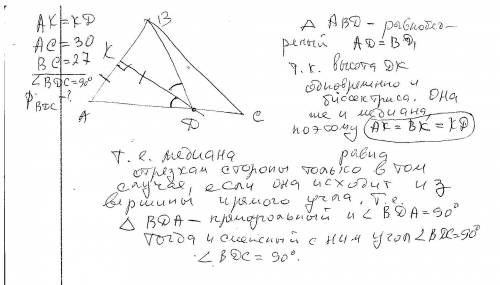 AK = KD
AC = 30
BC = 27
∠BDC = 90°
P BDC - ?
B
K
A
D
C
△ ABD - равнобед-
ренный AD = BD,
т.к. высота DK
одновременно и
биссектриса. Она
же и медиана,
поэтому AK = BK = KD
Т.е. медиана равна
отрезкам стороны только в том
случае, если она исходит из
вершины прямого угла. Т.е.
△ BDA - прямоугольный и ∠ BDA = 90°
тогда и смежный с ним угол ∠BDC = 90°
∠ BDC = 90°.